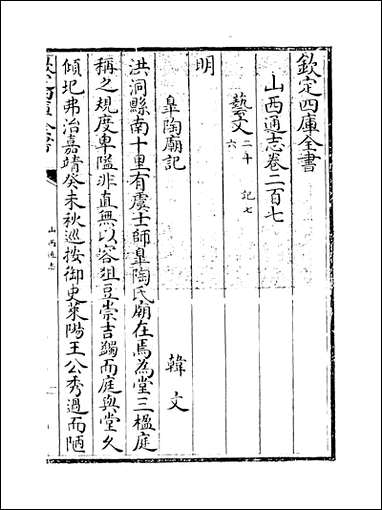 欽定四庫全書
山西通志卷二百七
藝文二十六 記七
明
臯陶廟記 韓文
洪洞縣南十里有虞士師臯陶氏廟在焉為堂三楹庭
稱之規度卑隘非直無以容俎豆崇吉蠲而庭與堂久
傾圯弗治嘉靖癸未秋巡按御史萊陽王公秀過而陋
山西通志